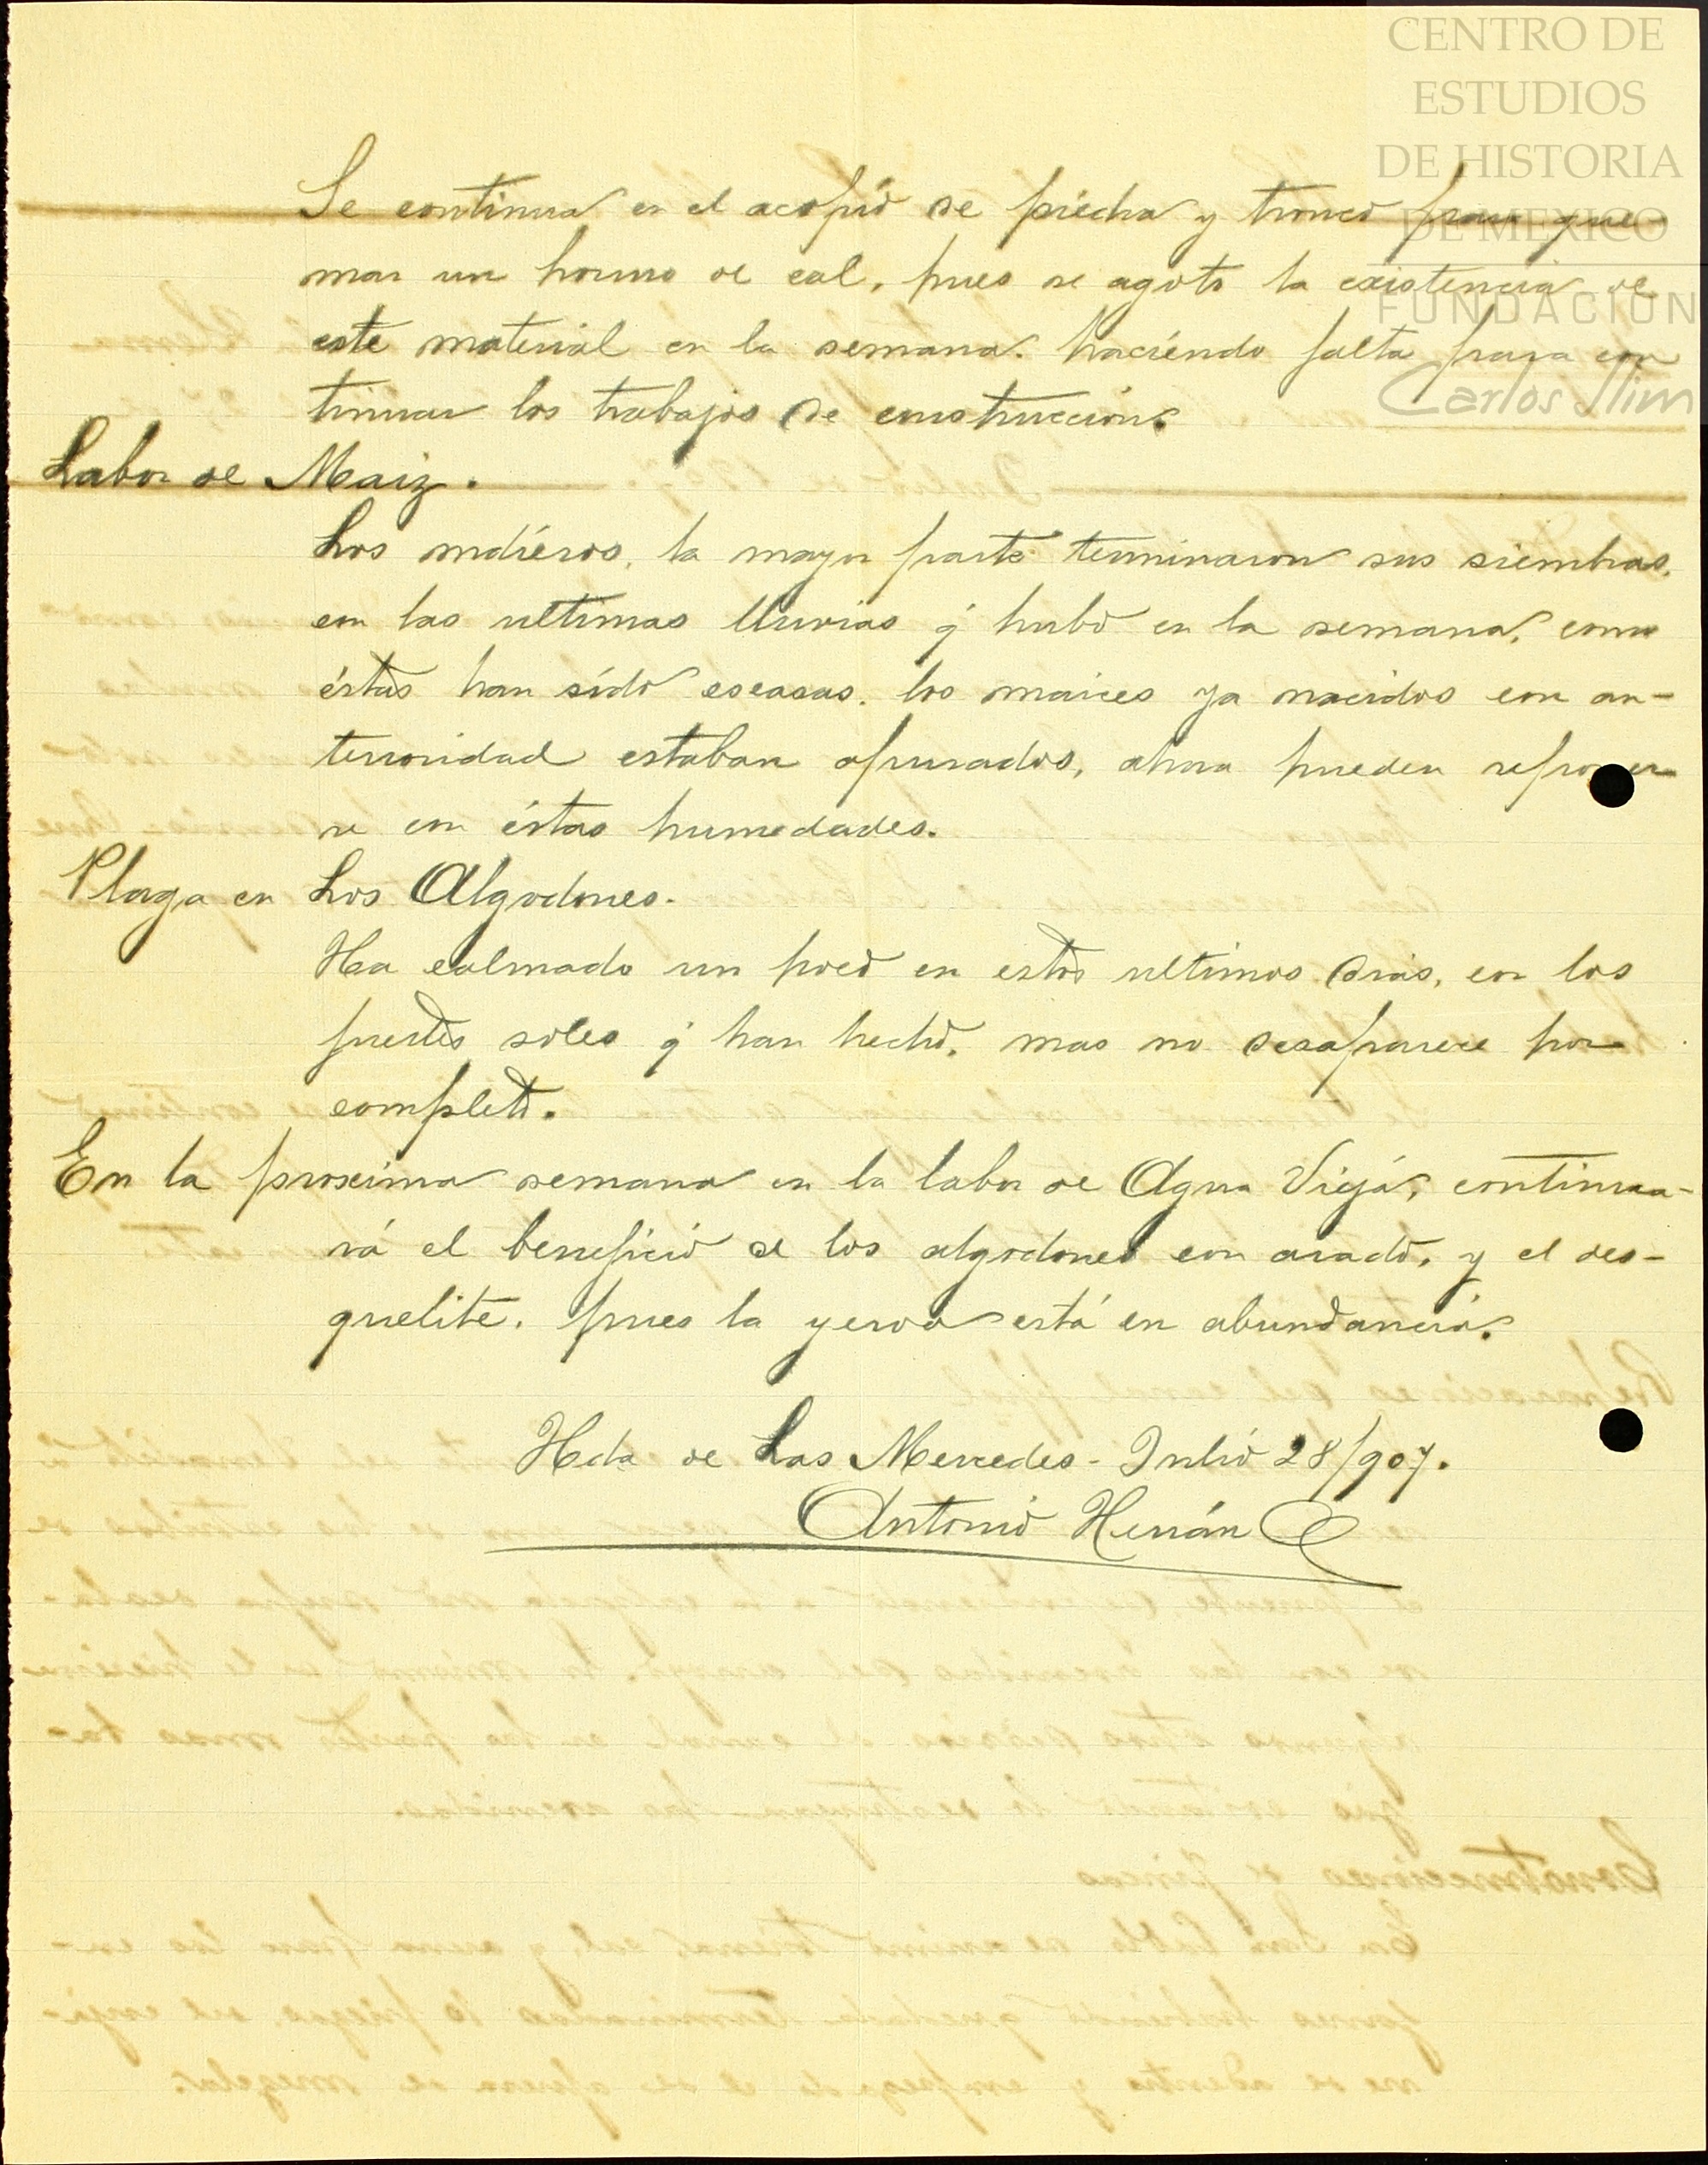 CENTRO DE
ESTUDIOS
DE HISTORIA
DE MEXICO
FUNDACION
Carlos Slim
Se continua en el acopio de piedra y tronco para que-
mar un horno de cal, pues se agoto la existencia de
este material en la semana. haciendo falta para con
tinuar los trabajos de construcción.
Labor de Maiz.
Los medieros, la mayor parte terminaron sus siembras,
con las ultimas lluvias q' hubo en la semana, como
éstas han sido escasas. los maices ya nacidos con an-
terioridad estaban apurados, ahora pueden reponer
se con éstas humedades.
Plaga en Los Algodones.
Ha calmado un poco en estos ultimos dias, con los
fuertes soles q' han hecho, mas no desaparece por
completo.
En la proxima semana en la labor de Agua Vieja, continua-
rá el beneficio de los algodones con arado, y el des-
quelite. pues la yerva está en abundancia.
Hda de Las Mercedes - Julio 28/907.
Antonio Herrán